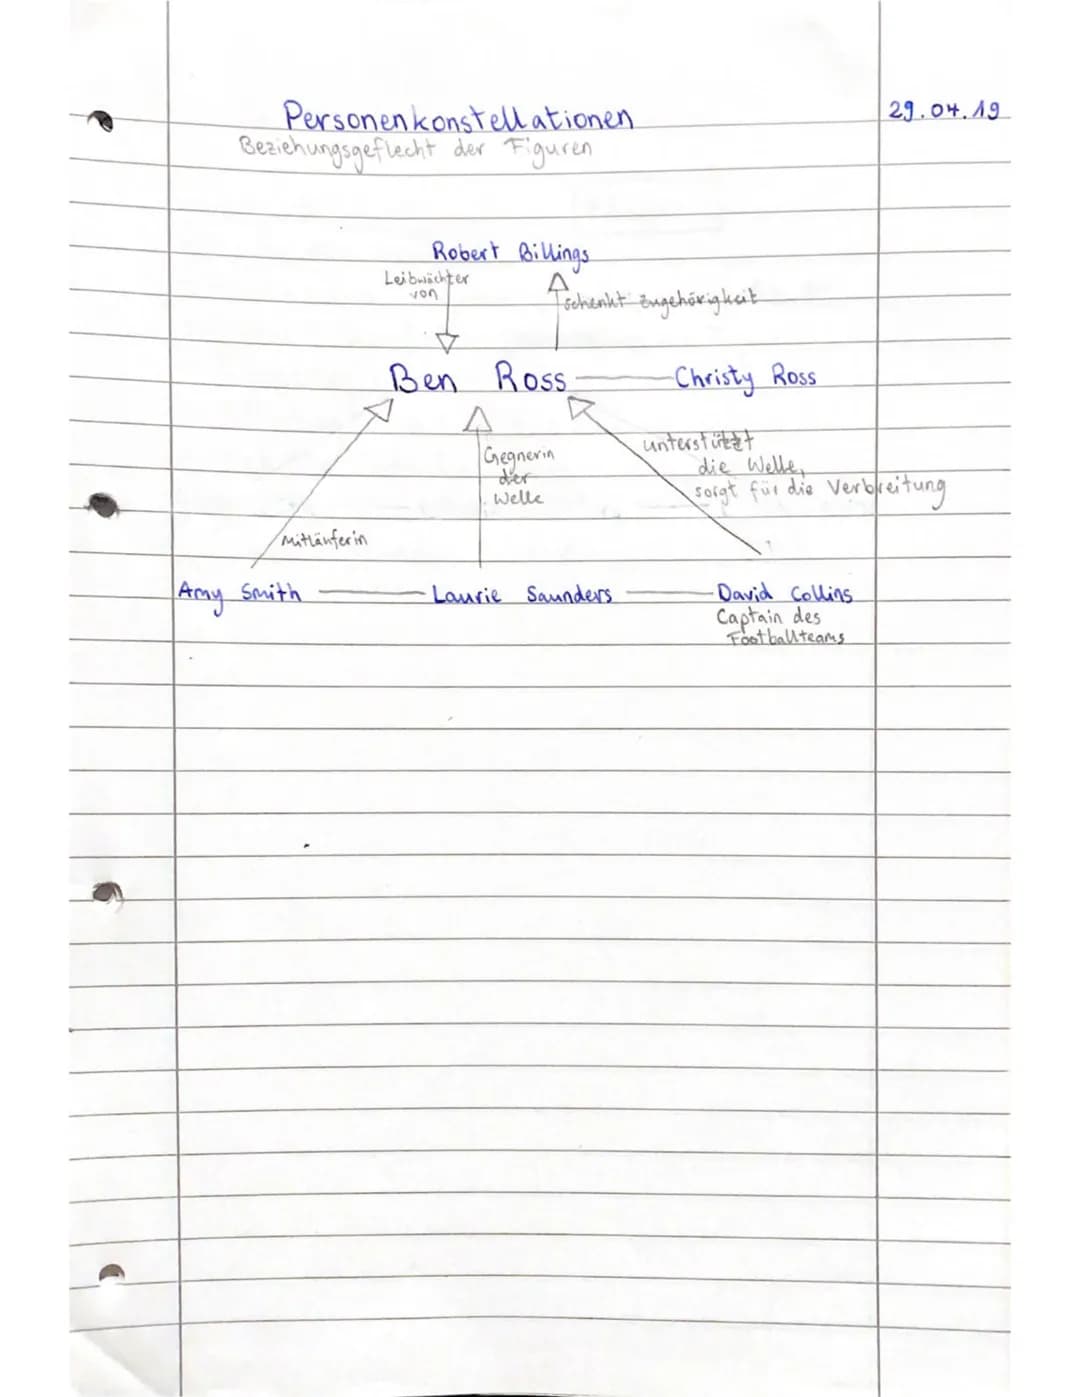 Personenkonstellationen
29.04.19
Beziehungsgeflecht der Figuren
Robert Billings
Leibwächter
von
schenkt zugehörigkeit
Ben Ross
Christy Ross
Gegnerin
der
Welle
unterstützt
die Welle,
sorgt für die Verbreitung
Mitläuferin
Amy Smith
Laurie Saunders
David Collins
Captain des
Footballteams